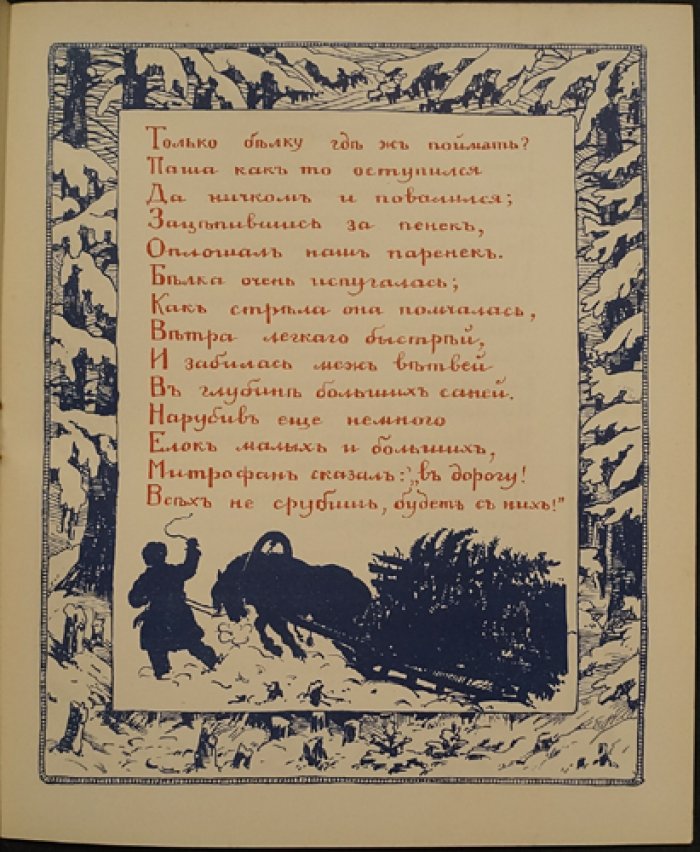 Только бѣлку гдѣ жъ поймать?
Паша какъ то оступился
Да ничкомъ и повалился;
Зацѣпившись за пенекъ,
Оплошалъ нашъ паренекъ.
Бѣлка очень испугалась;
Какъ стрѣла она помчалась,
Вѣтра легкаго быстрѣй,
И забилась межъ вѣтвей
Въ глубинѣ большихъ саней.
Нарубивъ еще немного
Елокъ малыхъ и большихъ,
Митрофанъ сказалъ: „въ дорогу!
Всѣхъ не срубишь, будетъ съ нихъ!"